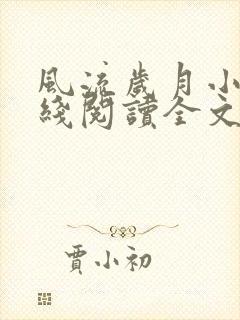 風流歲月小
綫閱讀全文
賈小初